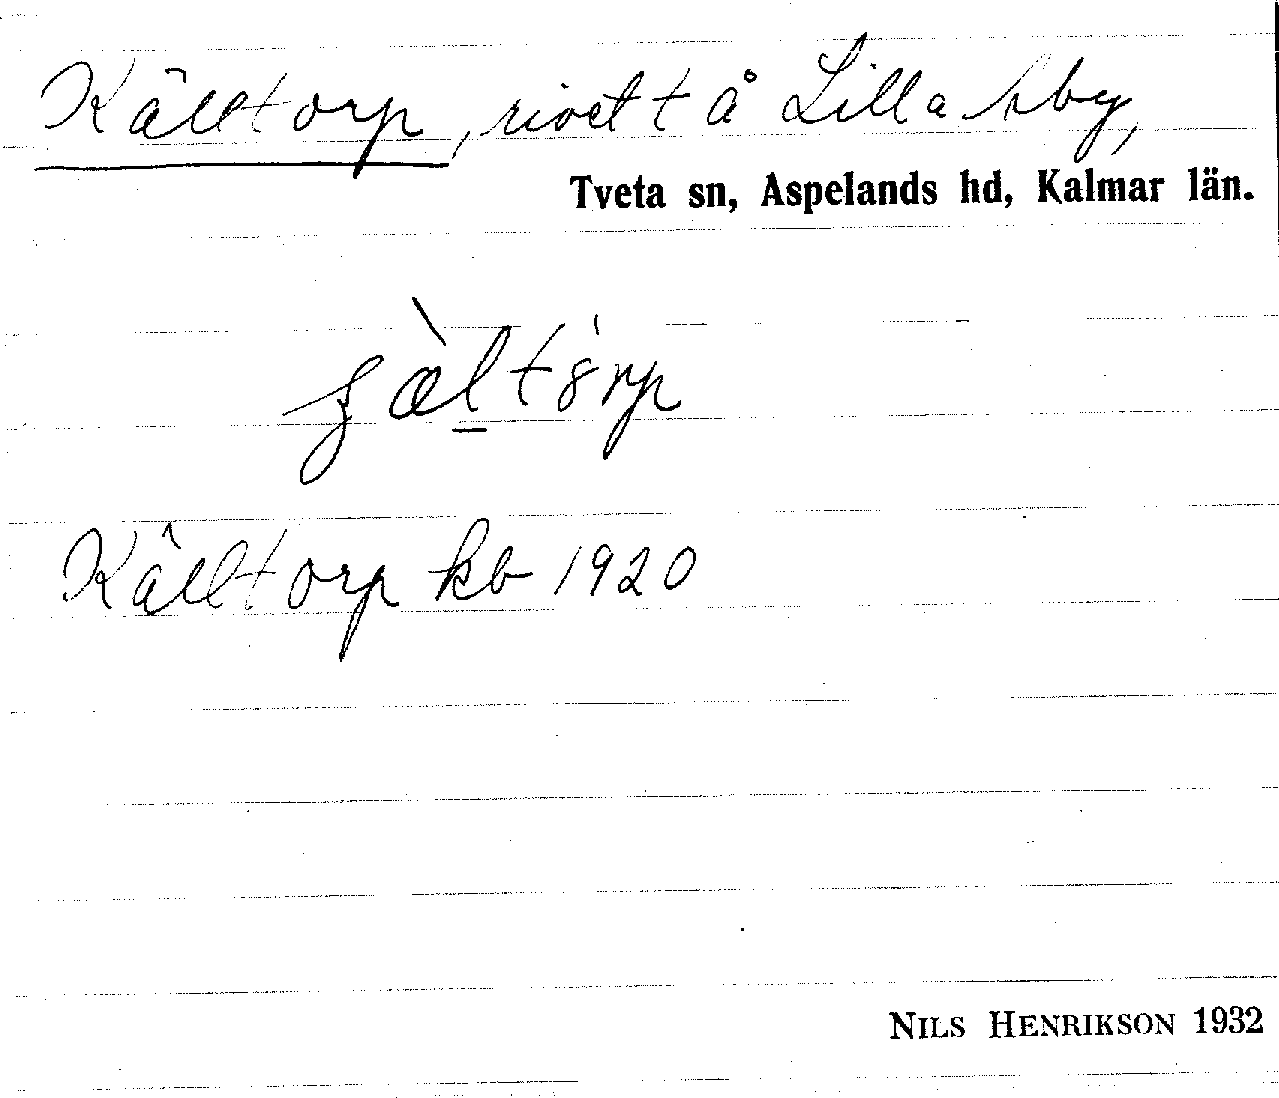 Källtorp, rivet t å Lilla Aby,
Tveta sn, Aspelands hd, Kalmar län.
Källtorp kb 1920
NILS HENRIKSON 1932